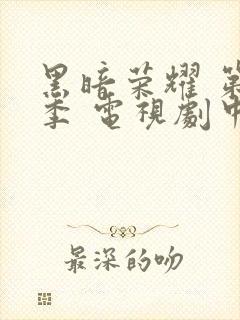 黑暗荣耀 第
季 電視劇中
最深的吻